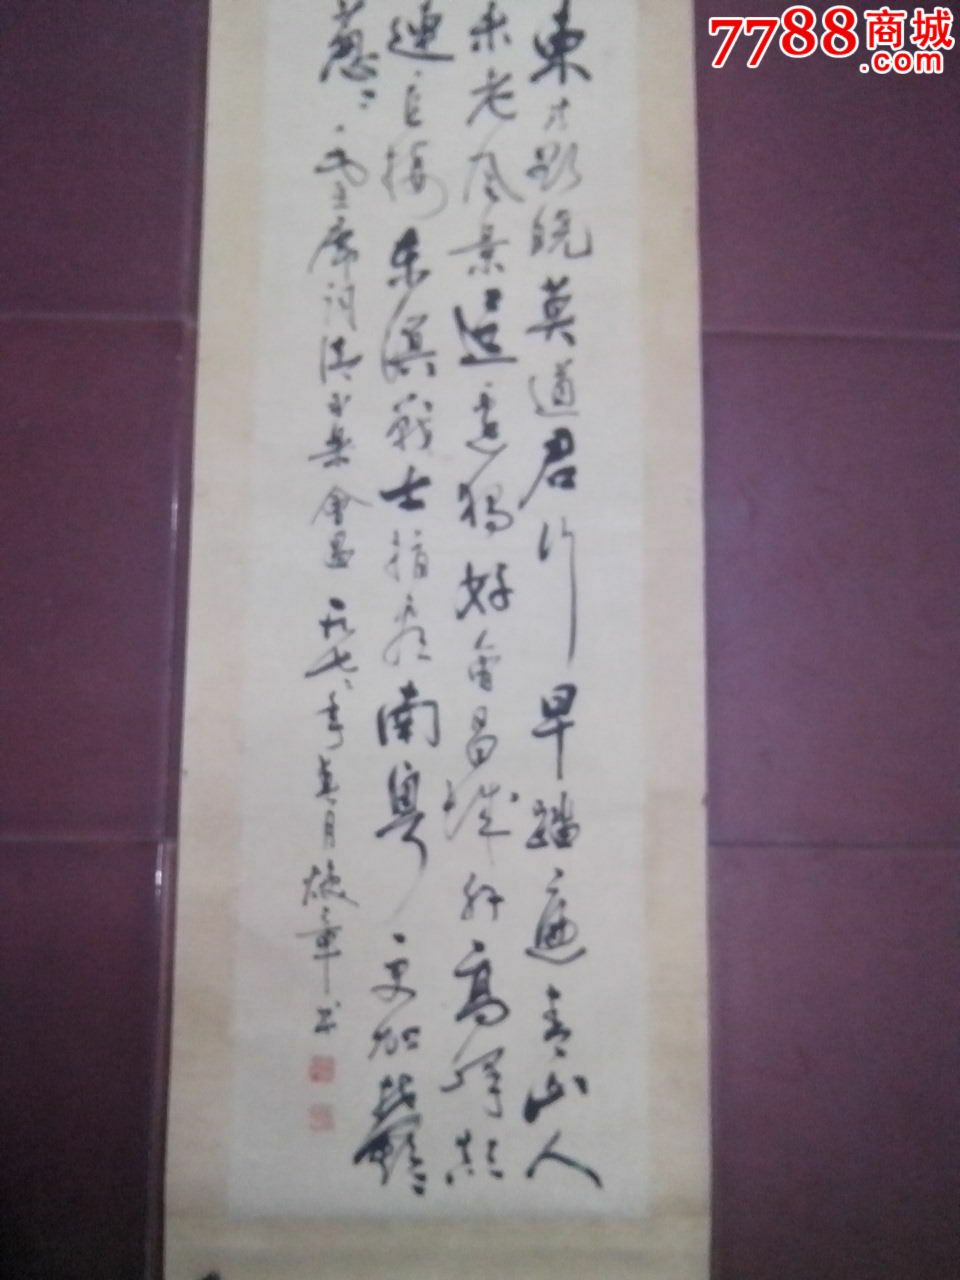 東方欲晓莫道君行早踏遍青山人
未老风景這边獨好會昌城外高峰顛
連直接东溟戰士指看南粤更加鬱々
葱々毛主席词清平乐會昌 一九七 年 月 焕章书
7788商城
.com